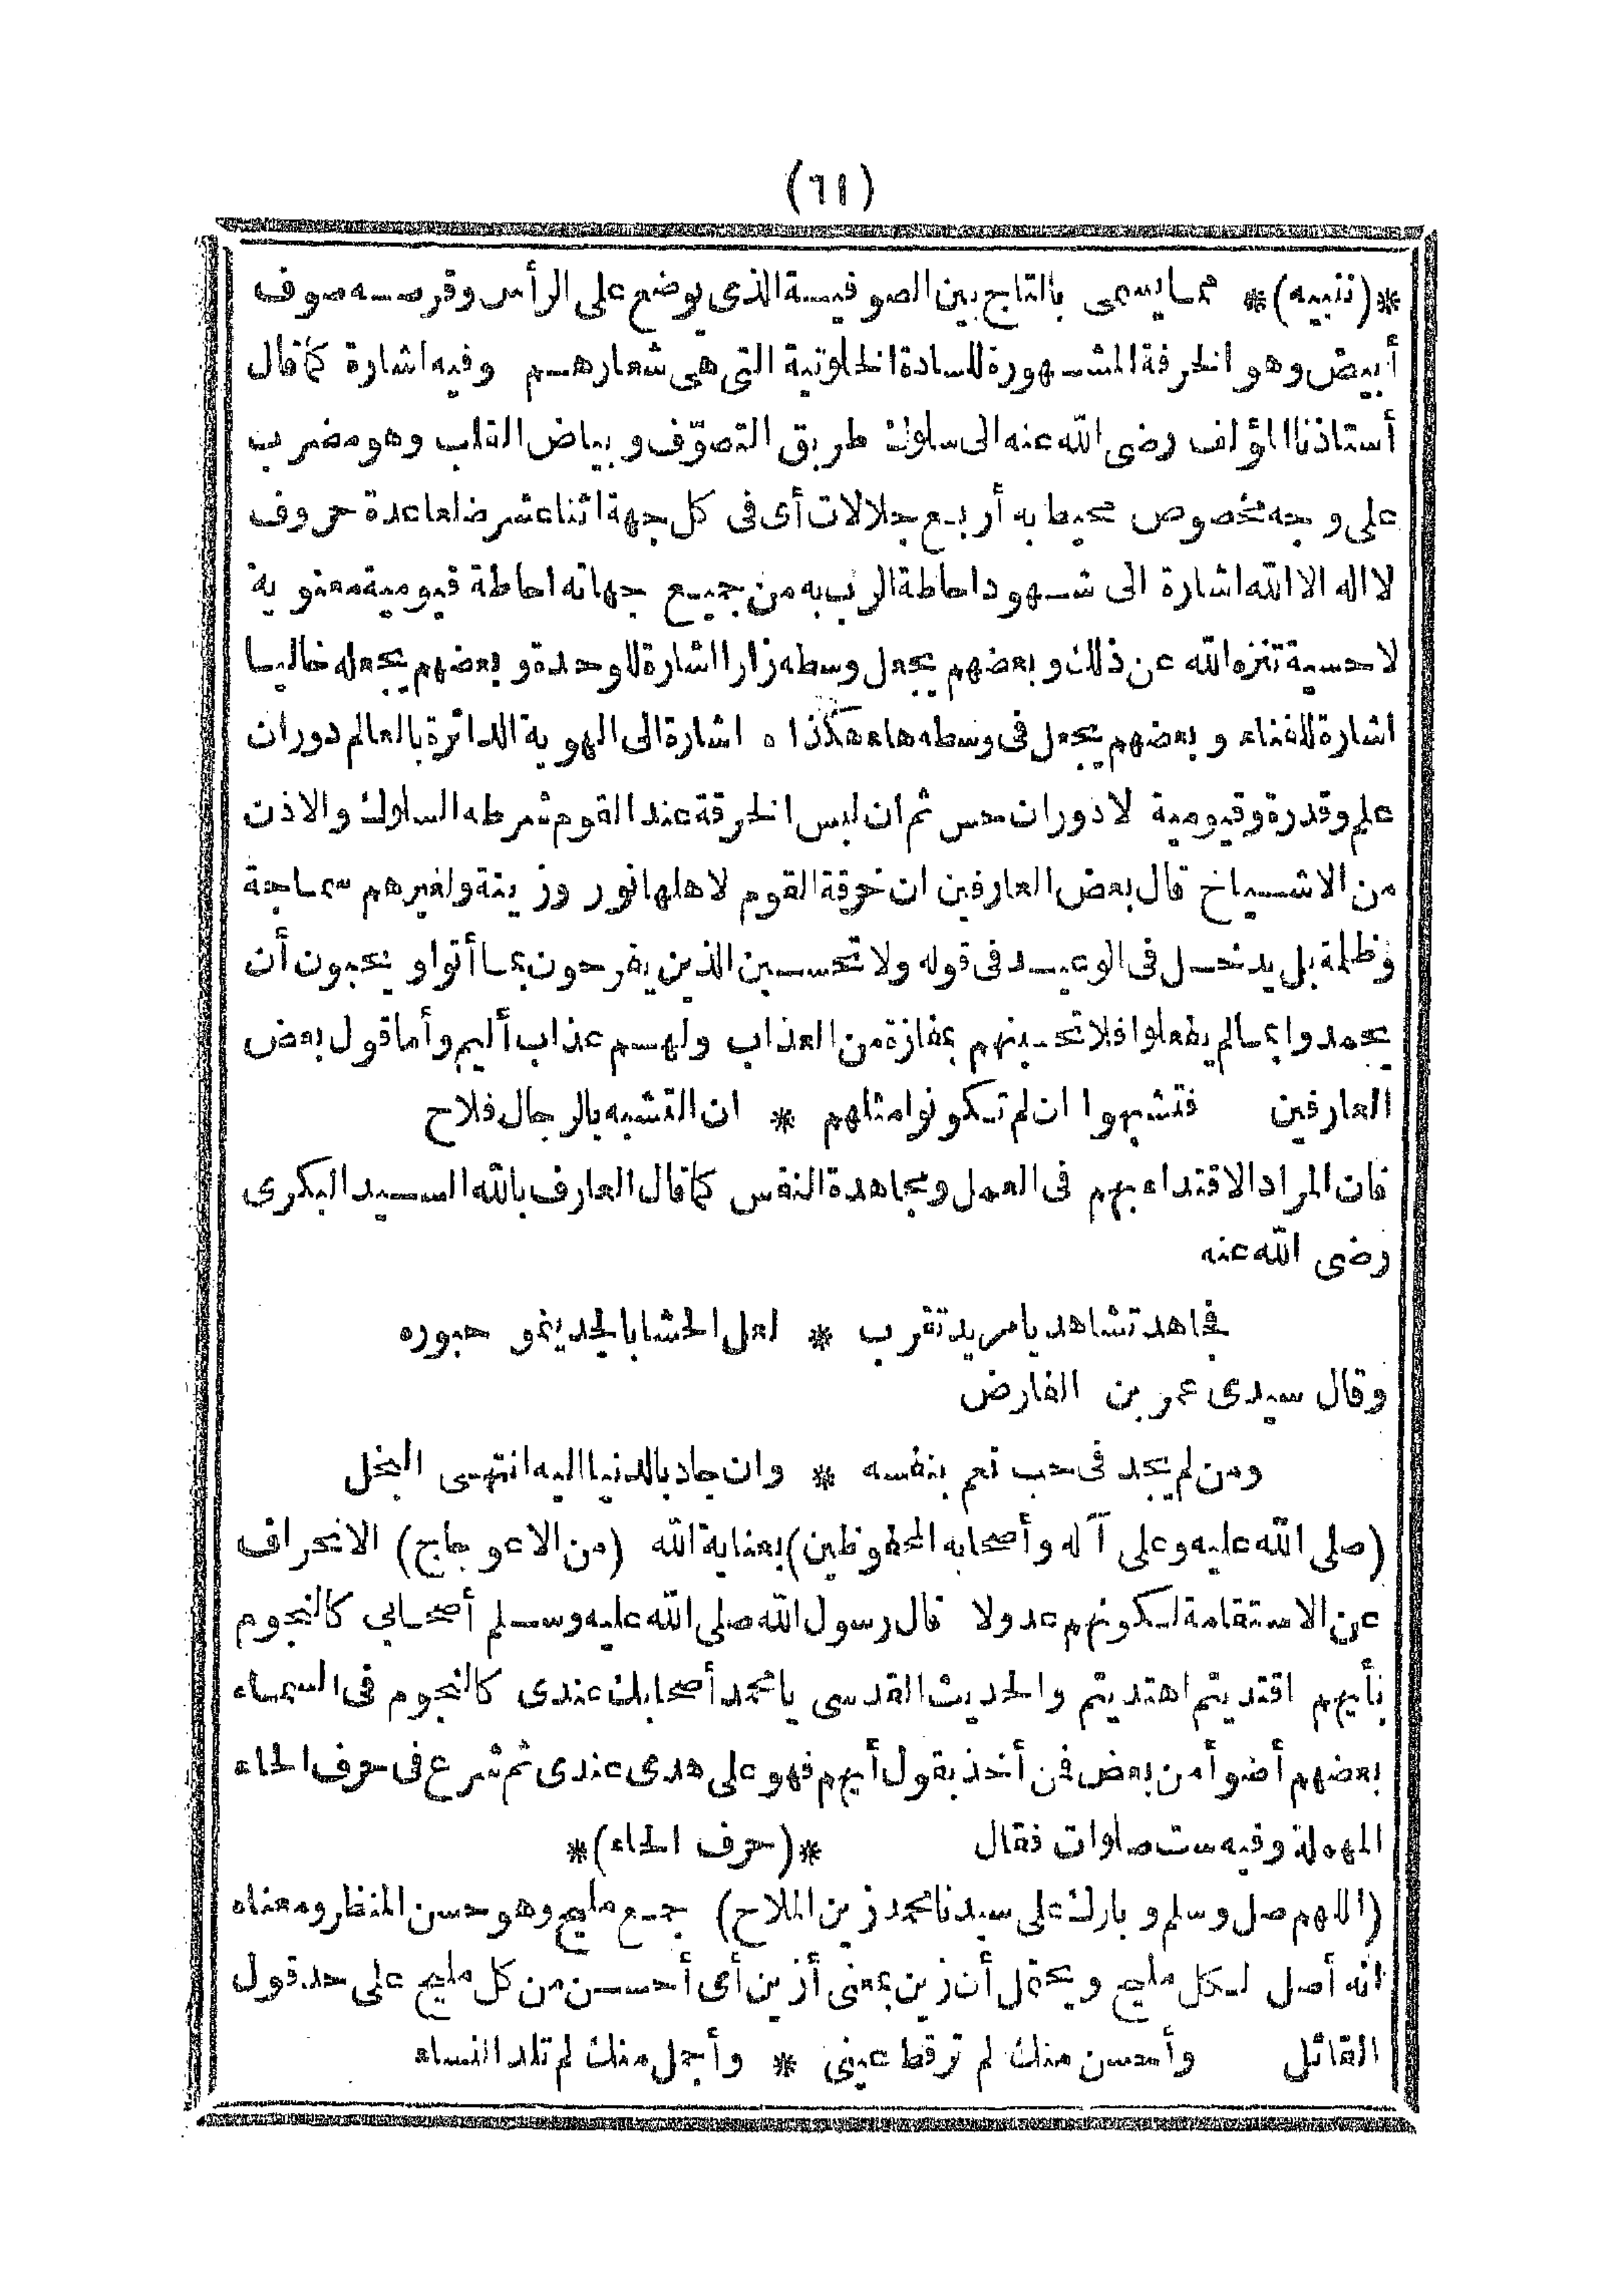 (٦١)
*(تنبيه)* مما يسمى بالتاج بين الصوفية الذى يوضع على الرأس وقرصه صوف
أبيض وهو الخرقة المشهورة للسادة الخلوتية التى هى شعارهم وفيه اشارة كما قال
أستاذنا المؤلف رضى الله عنه الى سلوك طريق التصوّف و بياض القلب وهو مضرب
على وجه مخصوص محيط به أربع جلالات أى فى كل جهة اثنا عشر ضلعا عدة حروف
لا اله الا الله اشارة الى شهود احاطة الرب به من جميع جهاته احاطة قيومية معنوية
لا حسية تنزه الله عن ذلك و بعضهم يجعل وسطه زارا اشارة للوحدة و بعضهم يجعله خاليا
اشارة للفناء و بعضهم يجعل فى وسطه هاء هكذا ه اشارة الى الهوية الدائرة بالعالم دوران
علم وقدرة وقيومية لا دوران حس ثم ان لبس الخرقة عند القوم شرطه السلوك والاذن
من الاشياخ قال بعض العارفين ان خرقة القوم لاهلها نور وزينة ولغيرهم سماجة
وظلمة بل يدخل فى الوعيد فى قوله ولا تحسبن الذين يفرحون بما أتوا و يحبون أن
يحمدوا بما لم يفعلوا فلا تحسبنهم بمفازة من العذاب ولهم عذاب أليم وأما قول بعض
العارفين فتشبهوا ان لم تكونوا مثلهم * ان التشبه بالرجال فلاح
فان المراد الاقتداء بهم فى العمل ومجاهدة النفس كما قال العارف بالله السيد البكرى
رضى الله عنه
فجاهد تشاهد يا مريد تقرب * لعل الحشا بالجد ينمو حبوره
وقال سيدى عمر بن الفارض
ومن لم يجد فى حب نعم بنفسه * وان جاد بالدنيا اليه انتهى البخل
(صلى الله عليه وعلى آله وأصحابه المحفوظين) بعناية الله (من الاعوجاج) الانحراف
عن الاستقامة لكونهم عدولا قال رسول الله صلى الله عليه وسلم أصحابى كالنجوم
بأيهم اقتديتم اهتديتم والحديث القدسى يا محمد أصحابك عندى كالنجوم فى السماء
بعضهم أضوأ من بعض فمن أخذ بقول أيهم فهو على هدى عندى ثم شرع فى حرف الحاء
المهملة وفيه ست صلوات فقال *(حرف الحاء)*
(اللهم صل وسلم و بارك على سيدنا محمد زين الملاح) جمع مليح وهو حسن المنظر ومعناه
انه أصل لكل مليح و يحتمل أن زين بمعنى أزين أى أحسن من كل مليح على حد قول
القائل وأحسن منك لم ترقط عينى * وأجمل منك لم تلد النساء